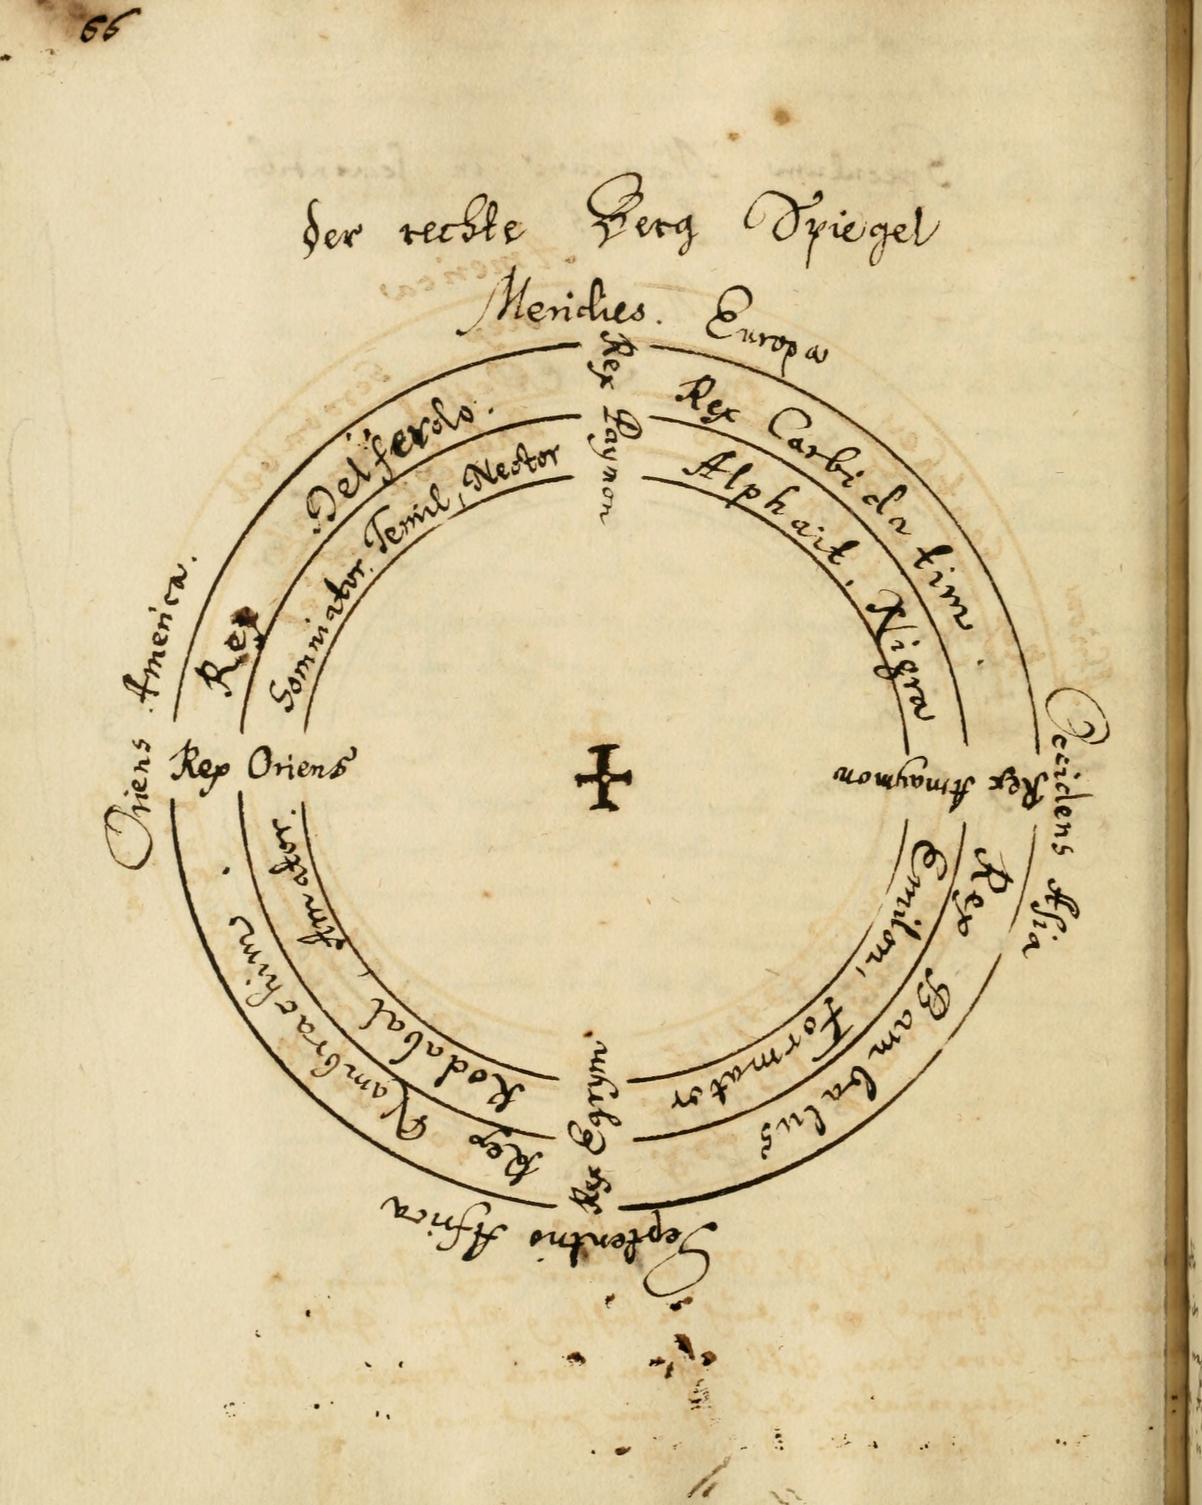 66
der rechte Berg Spiegel
Meridies. Europa
Rex Paymon
Rex Carbidatim
Alphait, Nigra
Occidens Asia
Rex Amaymon
Rex Bambalus
Emilon, Formator
Septentrio Africa
Rex Egÿm
Rex Vambrachim
Rodabal, Amator.
Oriens America.
Rex Oriens
Rex Delferolo.
Somniator. Temil, Nector